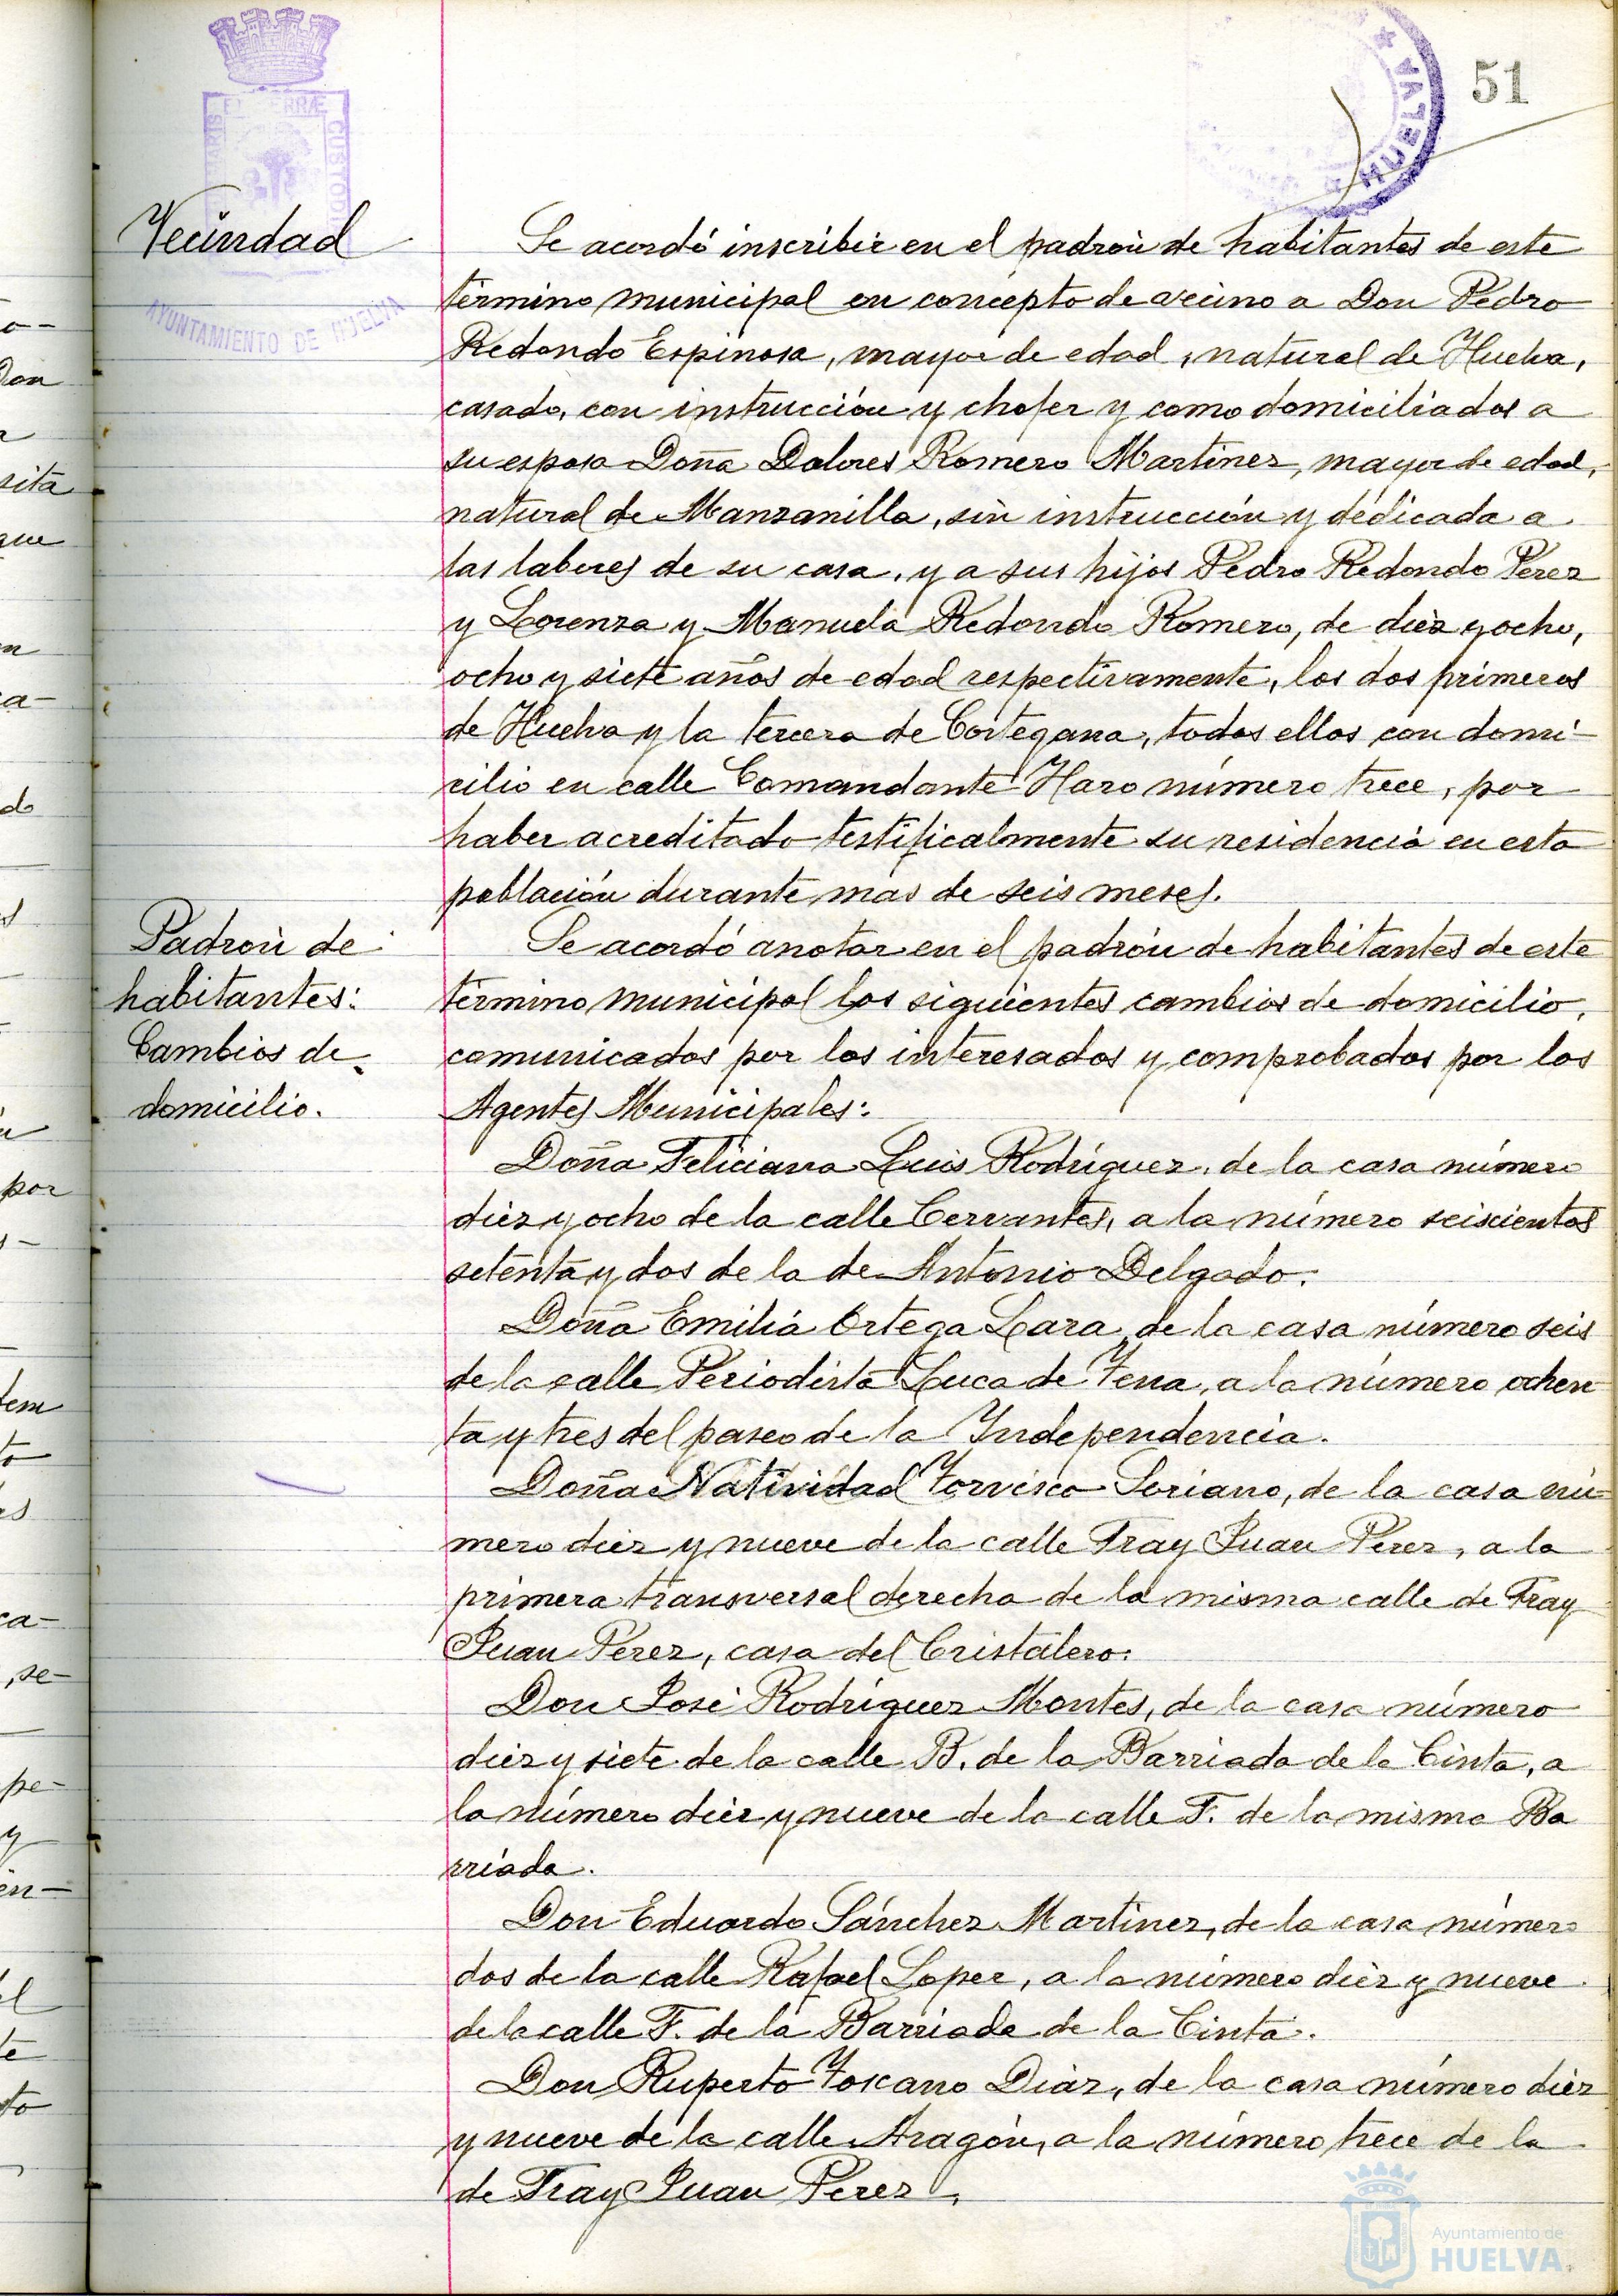 51
PORTUS MARIS ET TERRÆ CUSTODIA
AYUNTAMIENTO DE HUELVA
HUELVA
Vecindad
Se acordó inscribir en el padrón de habitantes de este
término municipal en concepto de vecino a Don Pedro
Redondo Espinosa, mayor de edad, natural de Huelva,
casado, con instrucción y chofer y como domiciliados a
su esposa Doña Dolores Romero Martinez, mayor de edad,
natural de Manzanilla, sin instrucción y dedicada a
las labores de su casa, y a sus hijos Pedro Redondo Perez
y Lorenza y Manuela Redondo Romero, de diez y ocho,
ocho y siete años de edad respectivamente, los dos primeros
de Huelva y la tercera de Cortegana, todos ellos con domi-
cilio en calle Comandante Haro número trece, por
haber acreditado testificalmente su residencia en esta
población durante mas de seis meses.
Padrón de
habitantes:
Cambios de
domicilio.
Se acordó anotar en el padrón de habitantes de este
término municipal los siguientes cambios de domicilio,
comunicados por los interesados y comprobados por los
Agentes Municipales:
Doña Feliciana Luis Rodríguez, de la casa número
diez y ocho de la calle Cervantes, a la número seiscientos
setenta y dos de la de Antonio Delgado.
Doña Emilia Ortega Lara, de la casa número seis
de la calle Periodista Luca de Tena, a la número ochen
ta y tres del paseo de la Independencia.
Doña Natividad Torvisco Soriano, de la casa nú-
mero diez y nueve de la calle Fray Juan Perez, a la
primera transversal derecha de la misma calle de Fray
Juan Perez, casa del Cristalero.
Don José Rodríguez Montes, de la casa número
diez y siete de la calle B. de la Barriada de la Cinta, a
la número diez y nueve de la calle F. de la misma Ba
rriada.
Don Eduardo Sánchez Martinez, de la casa número
dos de la calle Rafael Lopez, a la número diez y nueve
de la calle F. de la Barriada de la Cinta.
Don Ruperto Toscano Diaz, de la casa número diez
y nueve de la calle Aragón, a la número trece de la
de Fray Juan Perez.
Ayuntamiento de
HUELVA